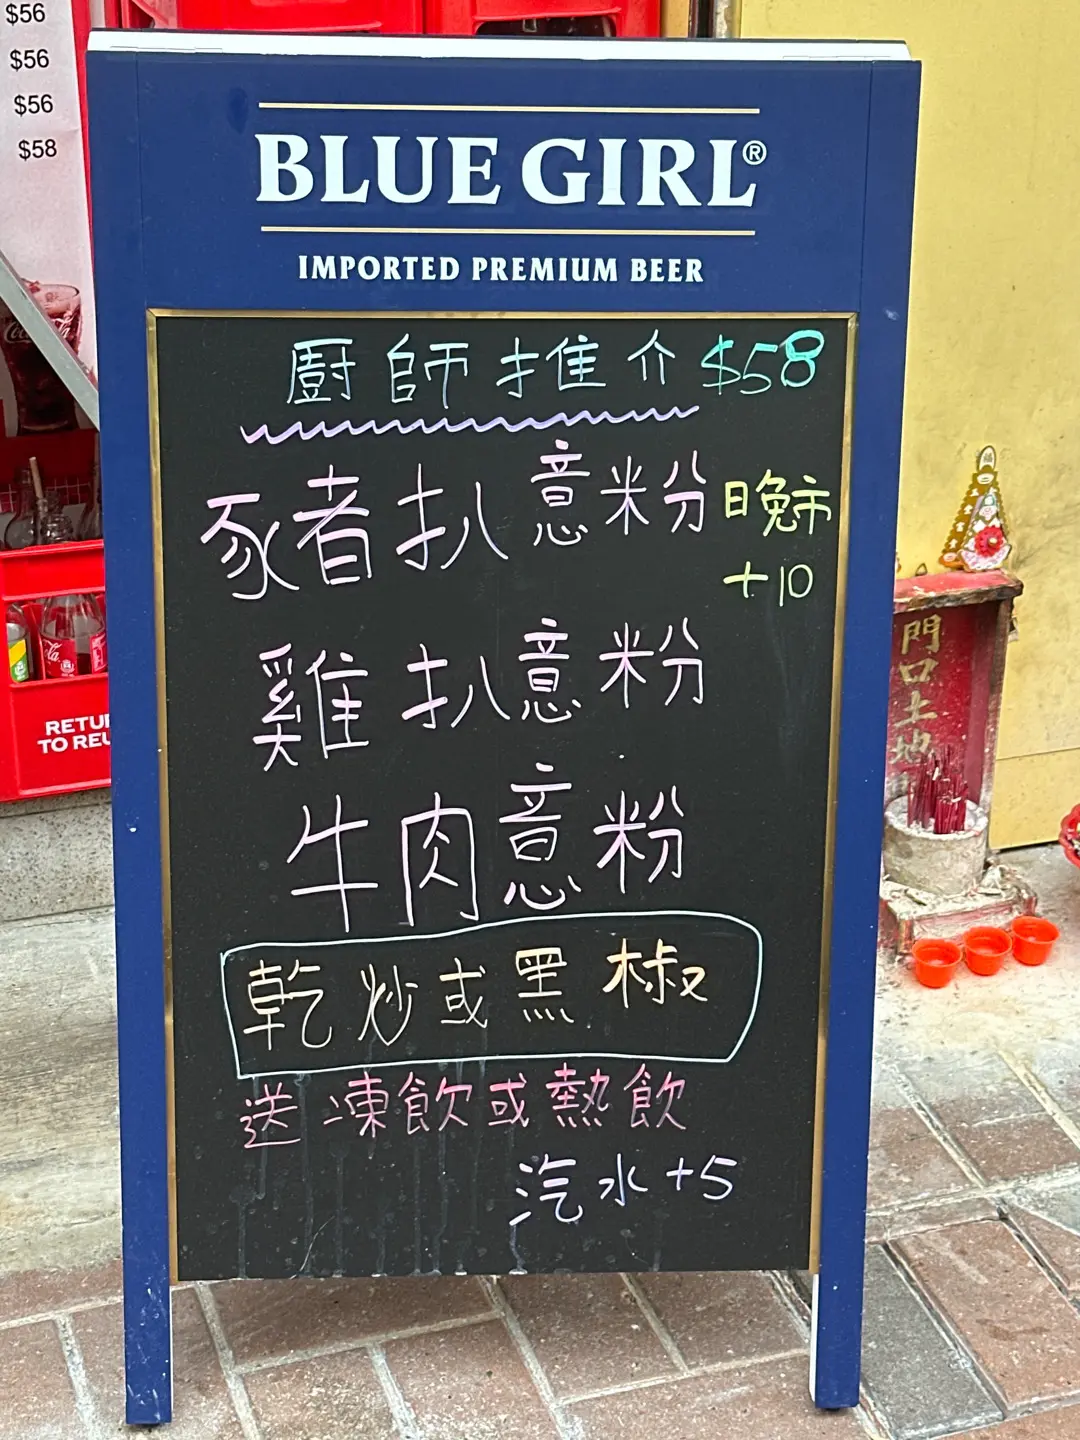 $56
$56
$56
$58
BLUE GIRL®
IMPORTED PREMIUM BEER
廚師推介 $58
豬扒意粉 晚市
+10
雞扒意粉
牛肉意粉
乾炒或黑椒
送凍飲或熱飲
汽水+5
RETU
TO REU
門口土地